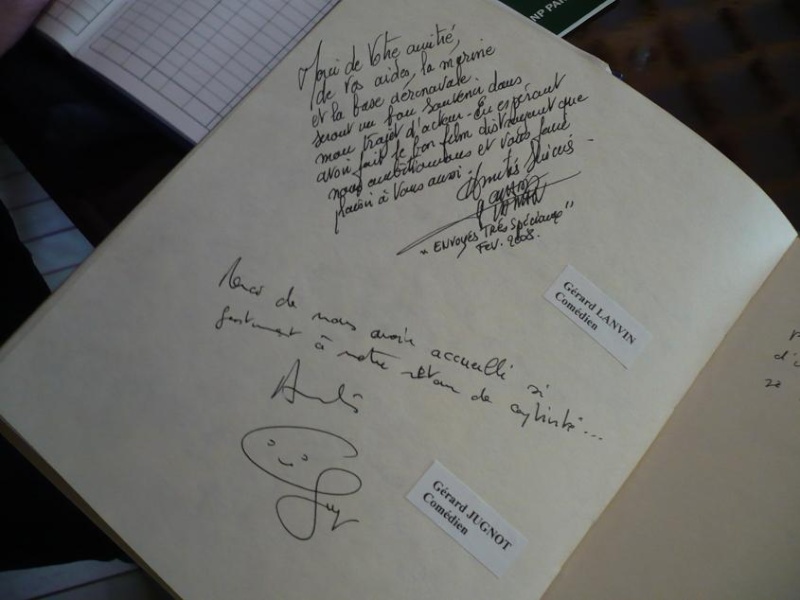 NP PAR
Merci de Votre amitié,
de vos aides, la marine
et la base aéronavale.
seront un bon souvenir dans
mon trajet d'acteur. En espérant
avoir fait le bon film distrayant que
nous ambitionnons et vous faire
plaisir à Vous aussi.
Amitiés
"ENVOYÉS TRÈS SPÉCIAUX"
FEV. 2008.
Gérard LANVIN
Comédien
Merci de nous avoir accueilli si
gentiment à notre retour de captivité...
Amitiés
Gérard JUGNOT
Comédien